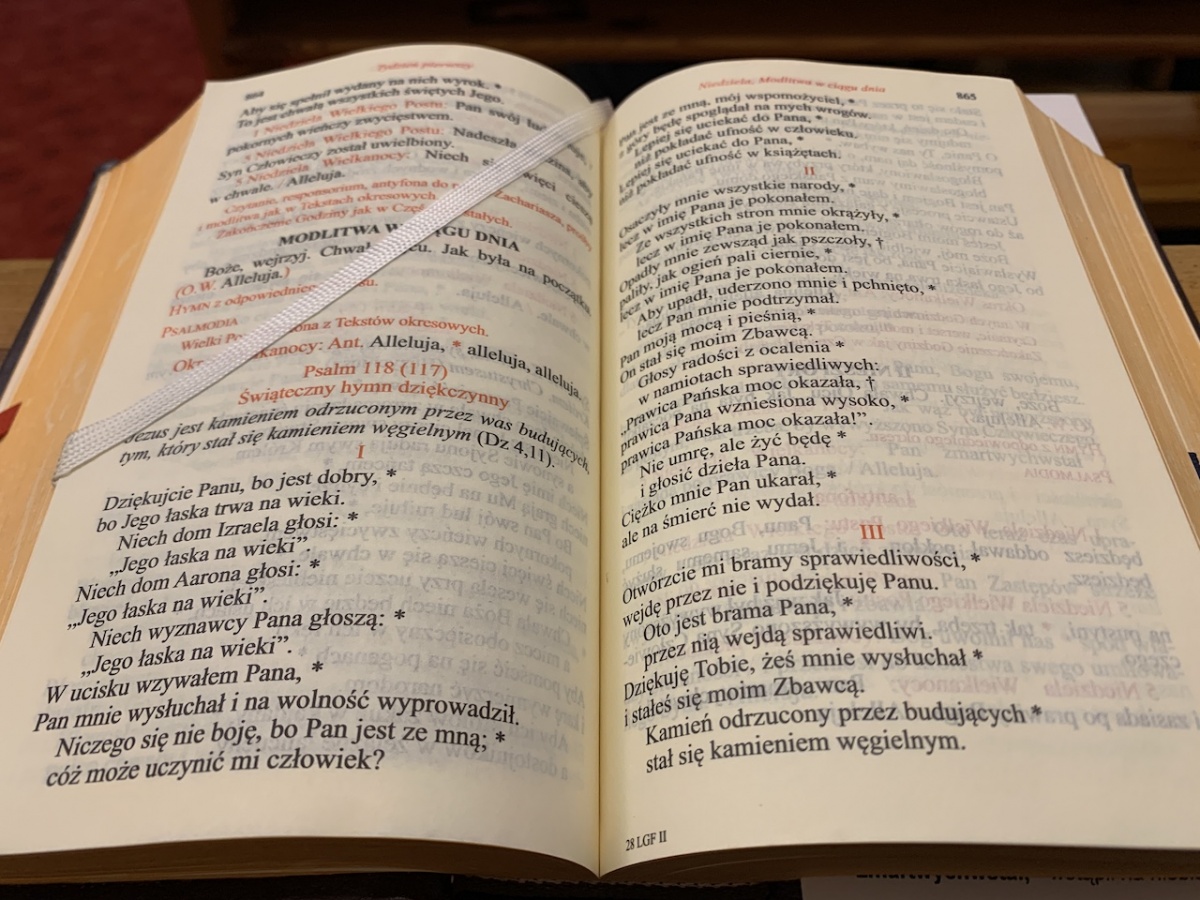 864
Tydzień pierwszy
Aby się spełnił wydany na nich wyrok. *
To jest chwałą wszystkich świętych Jego.
1 Niedziela Wielkiego Postu: Pan swój lud
pokornych wieńczy zwycięstwem.
5 Niedziela Wielkiego Postu: Nadeszła godzina, aby
Syn Człowieczy został uwielbiony.
5 Niedziela Wielkanocy: Niech się święci cieszą
w chwale. / Alleluja.
Czytanie, responsorium, antyfona do Zachariasza, prośby
i modlitwa jak w Tekstach okresowych.
Zakończenie Godziny jak w Częściach stałych.
MODLITWA W CIĄGU DNIA
Boże, wejrzyj. Chwała Ojcu. Jak była na początku.
(O. W. Alleluja.)
HYMN z odpowiedniego
PSALMODIA
Wielki Post: z Tekstów okresowych.
Okres Wielkanocy: Ant. Alleluja, * alleluja, alleluja.
Psalm 118 (117)
Świąteczny hymn dziękczynny
Jezus jest kamieniem odrzuconym przez was budujących,
tym, który stał się kamieniem węgielnym (Dz 4,11).
I
Dziękujcie Panu, bo jest dobry, *
bo Jego łaska trwa na wieki.
Niech dom Izraela głosi: *
„Jego łaska na wieki”.
Niech dom Aarona głosi: *
„Jego łaska na wieki”.
Niech wyznawcy Pana głoszą: *
„Jego łaska na wieki”.
W ucisku wzywałem Pana, *
Pan mnie wysłuchał i na wolność wyprowadził.
Niczego się nie boję, bo Pan jest ze mną; *
cóż może uczynić mi człowiek?
Niedziela, Modlitwa w ciągu dnia
865
Pan jest ze mną, mój wspomożyciel, *
z góry będę spoglądał na mych wrogów.
Lepiej się uciekać do Pana, *
niż pokładać ufność w człowieku.
Lepiej się uciekać do Pana, *
niż pokładać ufność w książętach.
II
Osaczyły mnie wszystkie narody, *
lecz w imię Pana je pokonałem.
Ze wszystkich stron mnie okrążyły, *
lecz w imię Pana je pokonałem.
Opadły mnie zewsząd jak pszczoły, †
paliły, jak ogień pali ciernie, *
lecz w imię Pana je pokonałem.
Aby upadł, uderzono mnie i pchnięto, *
lecz Pan mnie podtrzymał.
Pan moją mocą i pieśnią, *
On stał się moim Zbawcą.
Głosy radości z ocalenia *
w namiotach sprawiedliwych:
„Prawica Pańska moc okazała, †
prawica Pana wzniesiona wysoko, *
prawica Pańska moc okazała!”.
Nie umrę, ale żyć będę *
i głosić dzieła Pana.
Ciężko mnie Pan ukarał, *
ale na śmierć nie wydał.
III
Otwórzcie mi bramy sprawiedliwości, *
wejdę przez nie i podziękuję Panu.
Oto jest brama Pana, *
przez nią wejdą sprawiedliwi.
Dziękuję Tobie, żeś mnie wysłuchał *
i stałeś się moim Zbawcą.
Kamień odrzucony przez budujących *
stał się kamieniem węgielnym.
28 LGF II